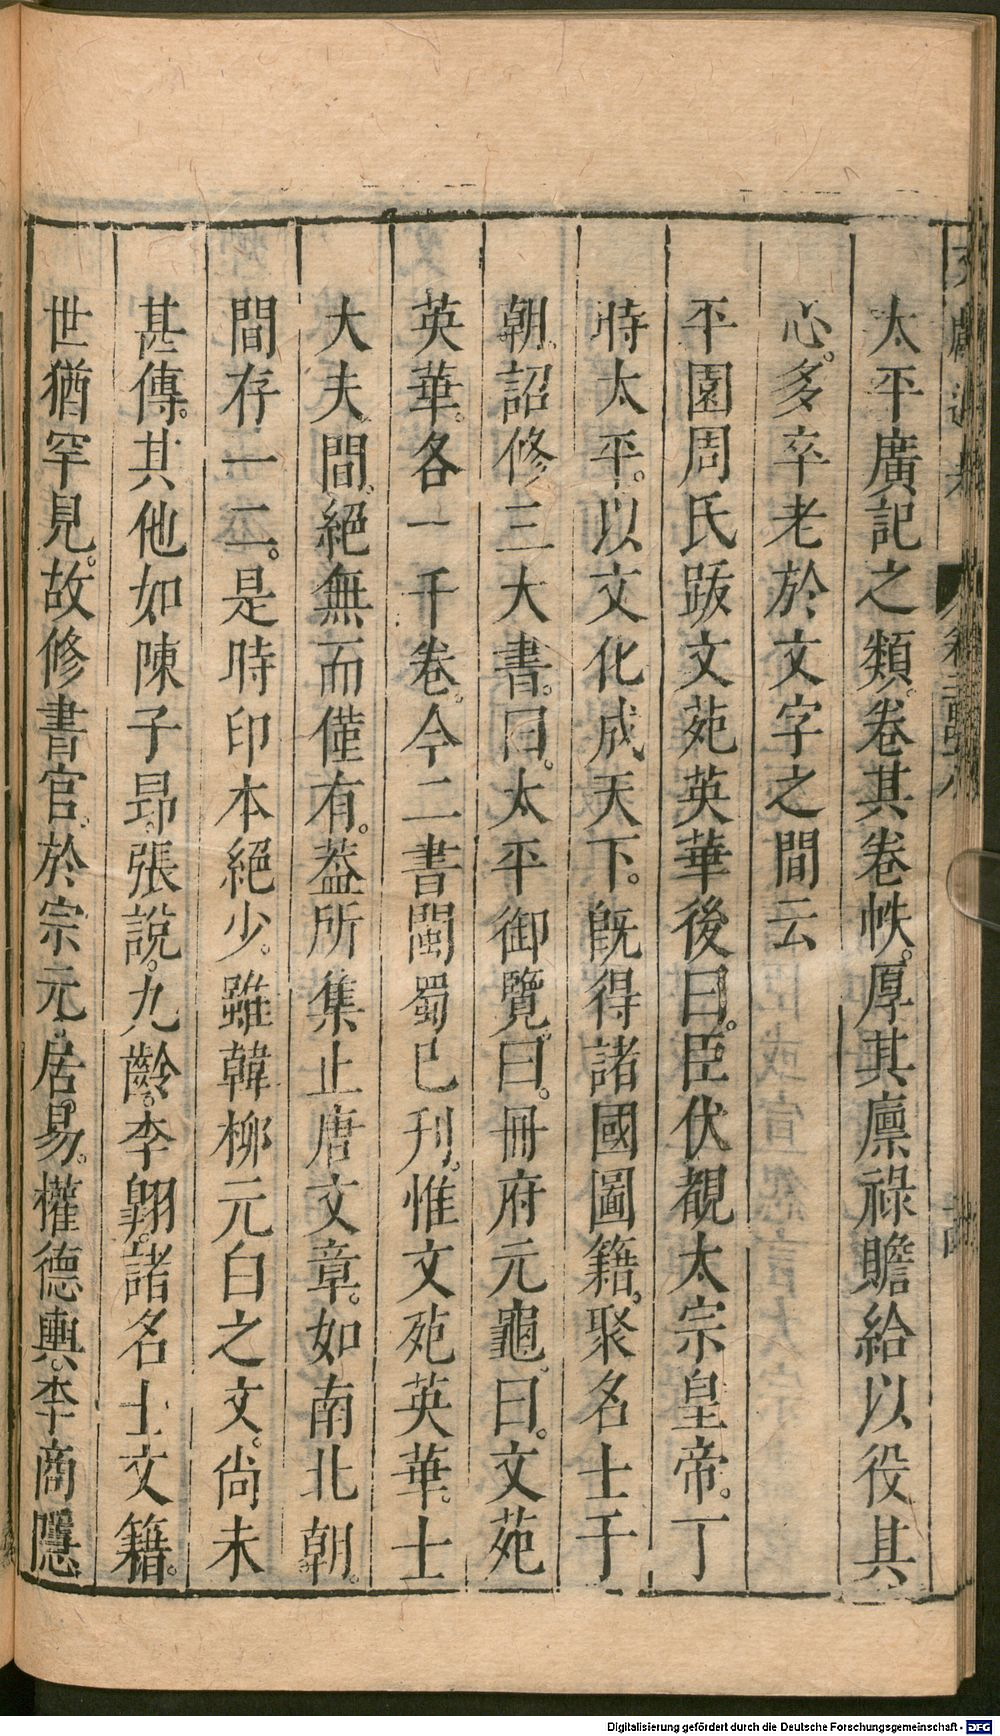 太平廣記之類。卷其卷帙。厚其廩祿贍給以役其
心。多卒老於文字之間云
平園周氏跋文苑英華後曰。臣伏覩太宗皇帝。丁
時太平。以文化成天下。旣得諸國圖籍。聚名士于
朝。詔修三大書。曰。太平御覽。曰。冊府元龜。曰。文苑
英華。各一千卷。今二書閩蜀已刊。惟文苑英華。士
大夫間。絕無而僅有。葢所集止唐文章。如南北朝。
間存一二。是時印本絕少。雖韓柳元白之文。尙未
甚傳。其他如陳子昻。張說。九齡。李翺。諸名士文籍。
世猶罕見。故修書官。於宗元。居易。權德輿。李商隱
Digitalisierung gefördert durch die Deutsche Forschungsgemeinschaft - DFG